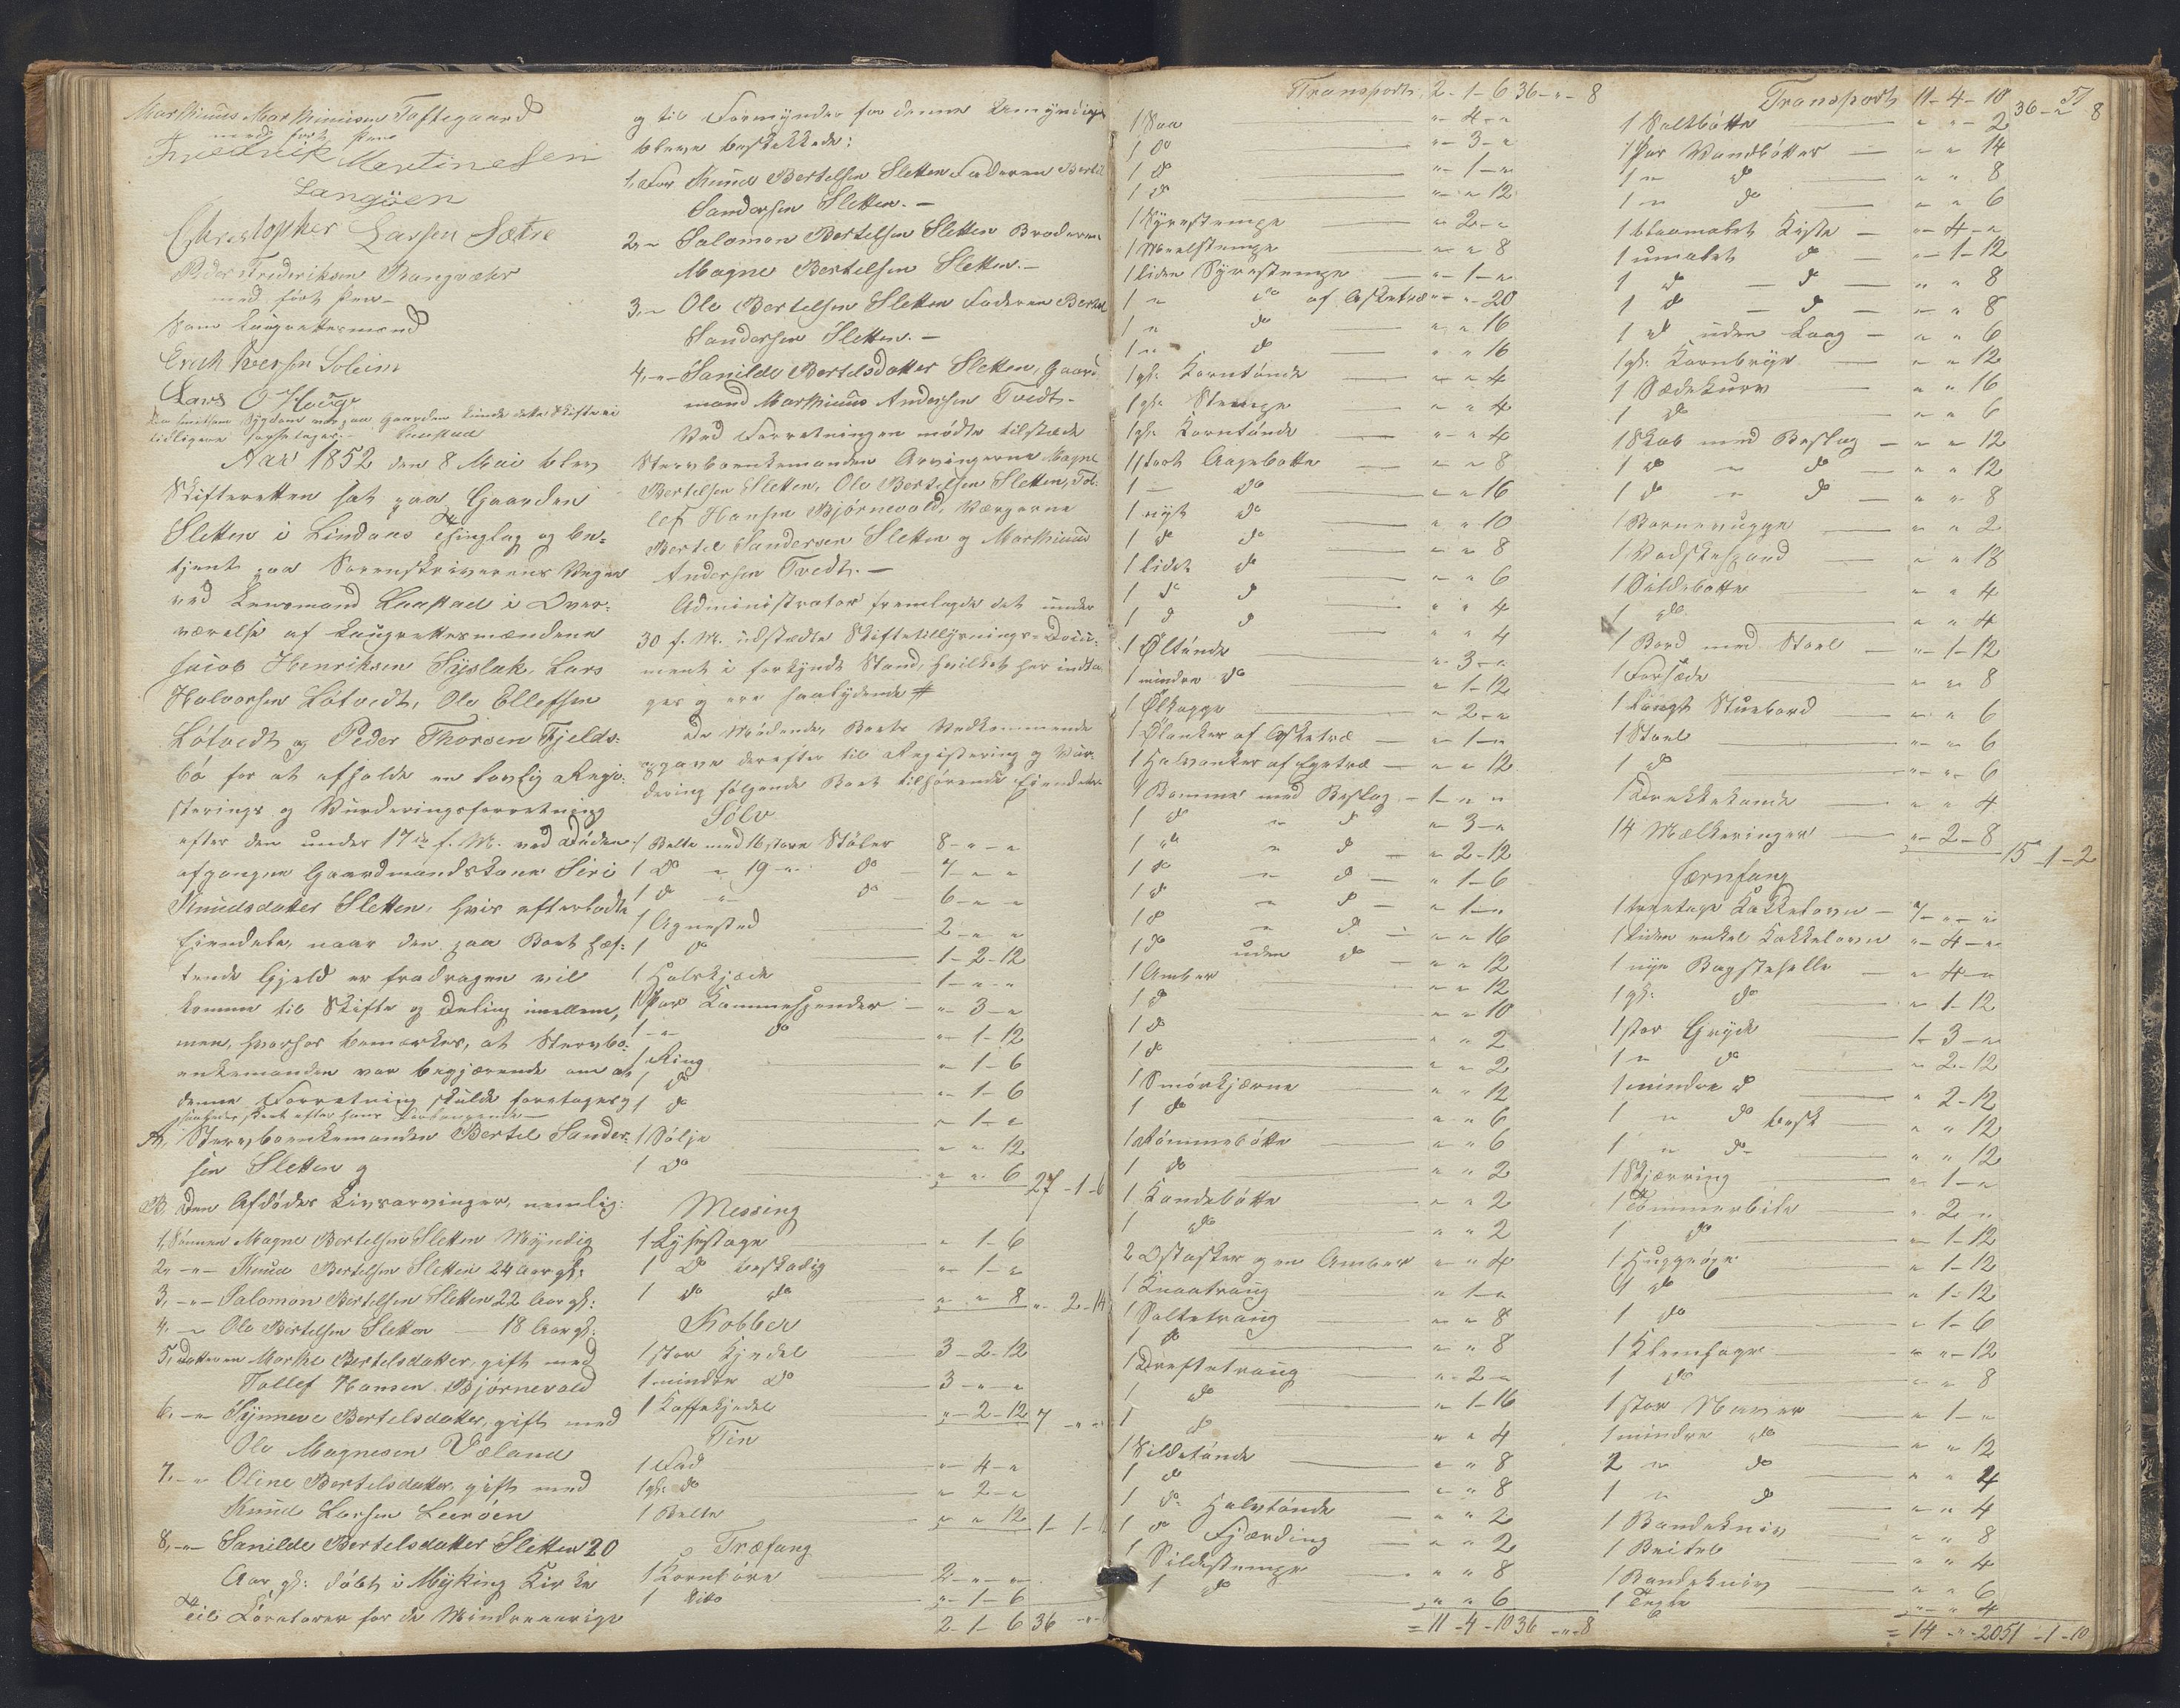 Mathinus Mathiasen Toftegaard
med ført Pen
Fredrik Martinesen
Langøen
Christopher Larsen Sætre
Peder Frederiksen Vangvater
med ført Pen
Som Laugrettesmænd
Erich Iversen Soleim
Lars O Hauge
tidligere foretages. Laastad
Aar 1852 den 8 Mai blev
Skifteretten sat paa Gaarden
Sletten i Lindaas Thinglag og be-
tjent paa Sorenskriverens Vegne
ved Lensmand Laastad i Over-
værelse af Laugrettesmændene
Jacob Henriksen Syslak, Lars
Halvorsen Løtvedt, Ole Ellefsen
Løtvedt og Peder Thorsen Fjelds-
bø for at afholde en lovlig Regi-
sterings og Vurderingsforretning
efter den under 17de f. M. ved Døden
afgangne Gaardmandskone Siri
Knudsdatter Sletten, hvis efterladte
Eiendele, naar den paa Boet hæf-
tende Gjeld er fradragen vil
komme til Skifte og Deling imellem,
men, hvorhos bemærkes, at Stervbo-
enkemanden var begjærende om at
denne Forretning skulde foretages
A, Stervboenkemanden Bertel Sander-
sen Sletten og
B, Den Afdødes Livsarvinger, nemlig:
1, Sønnen Magne Bertelsen Sletten Myndig
2, -"- Knud Bertelsen Sletten 24 Aar gl:
3, -"- Salomon Bertelsen Sletten 22 Aar gl:
4, -"- Ole Bertelsen Sletten - 18 Aar gl:
5, Datteren Marthe Bertelsdatter, gift med
Tollef Hansen Bjørnevold
6, -"- Synneve Bertelsdatter, gift med
Ole Magnesen Væland
7, -"- Oline Bertelsdatter, gift med
Knud Larsen Leerøen
8, -"- Sanilde Bertelsdatter Sletten 20
Aar gl: døbt i Myking Kirke
Til Curatorer for de Mindreaarige
og til Formynder for denne Umyndige
bleve beskikkede:
1, For Knud Bertelsen Sletten Faderen Bertel
Sandersen Sletten. -
2, -"- Salomon Bertelsen Sletten Broderen
Magne Bertelsen Sletten. -
3, -"- Ole Bertelsen Sletten Faderen Bertel
Sandersen Sletten. -
4, -"- Sanilde Bertelsdatter Sletten, Gaard
mand Mathinus Andersen Tvedt. -
Ved Forretningen mødte tilstæde
Stervboenkemanden Arvingerne Magne
Bertelsen Sletten, Ole Bertelsen Sletten, Tol-
lef Hansen Bjørnevold, Værgerne
Bertel Sandersen Sletten og Mathinus
Andersen Tvedt. -
Administrator fremlagde det under
30 f. M. udstædte Skiftetillysnings-Docu-
ment i forkyndt Stand, hvilket her indta-
ges og ere saalydende #
De Mødende, Boets Vedkommende
opgave derefter til Registering og Vur-
dering følgende Boet tilhørende Eiendele
Sølv
1 Belte med 16 store Støler 8 - " - "
1 Do " 19 " do 7 - " - "
1 do " do 6 - " - "
1 Agnested 2 - " - "
1 do 1 - 2 - 12
1 Halskjæde 1 - " - "
1 Par Kammespender " - 3 - "
1 - " do " - 1 - 12
1 Ring " - 1 - 6
1 do " - 1 - 6
1 do " - 1 - "
1 Sølje " - " 12
1 Do " - " 6 27 - 1 - 6
Messing
1 Lysestage " 1 - 6
1 Do beskadig " - 1 - "
1 do do " - " 8 " - 2 - 14
Kobber
1 stor Kjedel 3 - 2 - 12
1 mindre Do 3 - " - "
1 Kaffekjedel " - 2 - 12 7 - " - "
Tin
1 Fad " - 4 - "
1 gl: do " 2 - "
1 Belte " " 12 1 - 1 -
Træfang
1 Korntøre 2 - " - "
1 Ditto " - 1 - 6
2 - 1 - 6 36 - " -
Transport 2 - 1 - 6 36 - " - 8
1 Saa " - 4 - "
1 Do " - 3 - "
1 do " - 1 - "
1 do " - " 12
1 Syrestampe " 2 - "
1 Meelstampe " " 8
1 liden Syrestampe " - 1 - "
1 " do af Asketræ " " - 20
1 " do " " 16
1 " do " " 16
1 gl: Korntønde " " 4
1 gl: Stampe " " 4
1 gl: Korntønde " - " 4
1 stort Aagebøtte " " 8
1 - Do " " 16
1 nyt do " " 10
1 do do " " 8
1 lidet do " " 6
1 do do " " 4
1 do do " " 4
1 Øltønde " 3 - "
1 mindre do " 1 - 12
1 Ølkagge " 2 - "
1 Ølanker af Asketræ " - 1 - "
1 Halvanker af Egetræ " " 12
1 Bomme med Beslag - 1 - " "
1 do " do " 3 - "
1 do " do " 2 - 12
1 do " do " 1 - 6
1 do " do " 1 - "
1 do " do " " 16
1 do uden do " " 12
1 Amber " " 12
1 do " " 10
1 do " " 2
1 do " " 2
1 Smørkjærne " " 12
1 do " " 6
1 Rømmebøtte " " 6
1 do " " 2
1 Kandebøtte " " 2
1 do " " 2
2 Ostasker og en Amber " " 4
1 Knaatraug " 1 - "
1 Saltetraug " " 8
1 do " " 8
1 Drøftetraug " 2 - "
1 do " 1 - 16
1 do " " 4
1 Sildetønde " " 8
1 do " " 8
1 do Halvtønde " " 2
1 do Fjærding " " 2
1 Sildestampe " " 8
1 do " " 6
= 11 - 4 - 10 36 - " - 8
51
Transport 11 - 4 - 10 36 - " 8
1 Saltbøtte " " - 2
1 Par Vandbøtter " " 14
1 " do " " 8
1 " do " " 6
1 blaamalet Kiste " - 4 - "
1 umalet do " - 1 - 12
1 do - do " " 8
1 do - do " " 8
1 do uden Laag " " 6
1 gl: Kornbryn " " 12
1 Sædekurv " " 16
1 do " " 6
1 Skab med Beslag " " 12
1 do " do " " 12
1 do " do " " 8
1 Barnevugge " " 2
1 Vadskespand " " 18
1 Sildebøtte " " 4
1 do " " 4
1 Bord med Stoel " - 1 - 12
1 Forsæde " " 8
1 Langt Stuebord " " 6
1 Stoel " " 6
1 do " " 6
1 Drikkekande " " 4
14 Mælkeringer " 2 - 8 15 - 1 - 2
Jernfang
1 treetages Kakkelovn 7 - " - "
1 liden enkel Kakkelovn " - 4 - "
1 nye Bagstehelle " 4 - "
1 gl: do " 1 - 12
1 stor Gryde 1 - 3 - "
1 " do " 2 - 12
1 mindre do " 2 - 12
1 " do besk " " 12
1 " do " " 12
1 Skjærring " 1 - "
1 Tømmerbile " 2 - "
1 do " 1 - 12
1 Huggeøxe " 1 - 12
1 do " 1 - 12
1 do " 1 - 6
1 Klemsage " " - 12
1 do " " 8
1 stor Naver " 1 - "
1 mindre do " " 12
2 " do " " 4
1 " do " " 4
1 Bandekniv " " 8
1 Beitel " " 4
1 Bandekniv " " 6
1 Texle " " 4
= 14 - " - 20 51 - 1 - 10